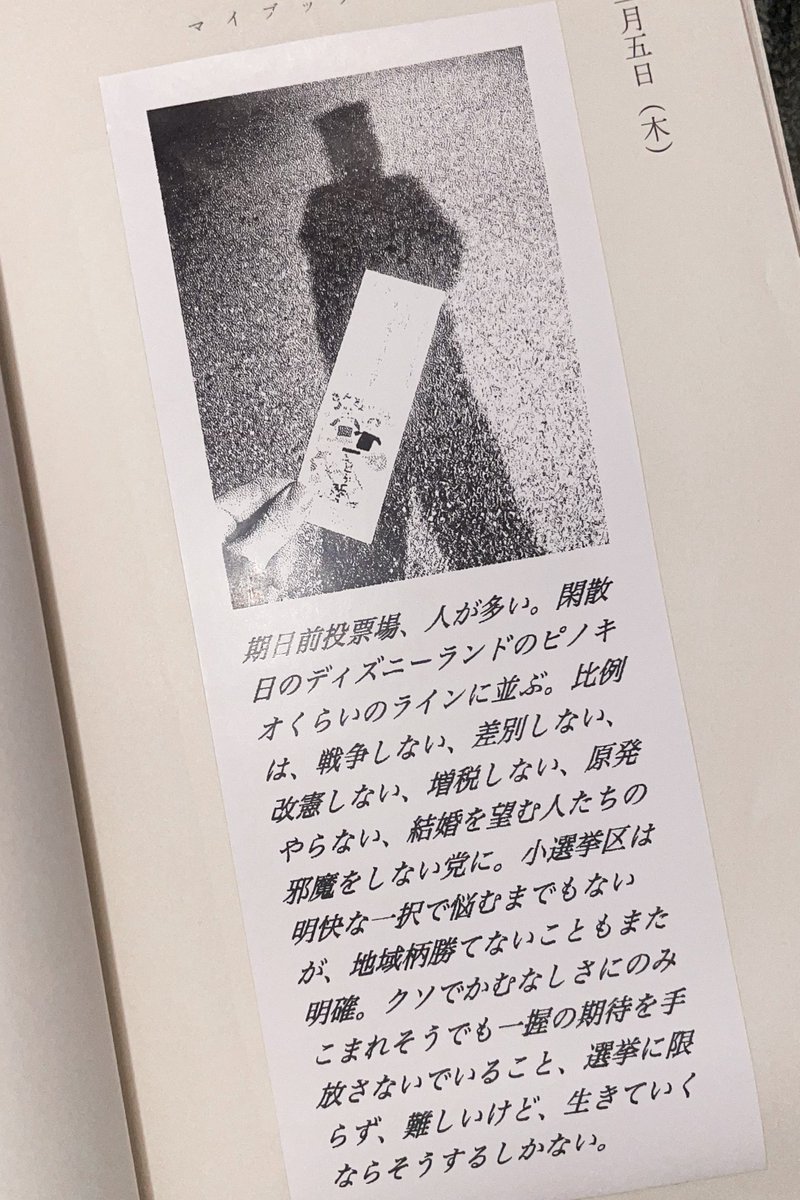 マイブック
月五日（木）
期日前投票場、人が多い。閑散
日のディズニーランドのピノキ
オくらいのラインに並ぶ。比例
は、戦争しない、差別しない、
改憲しない、増税しない、原発
やらない、結婚を望む人たちの
邪魔をしない党に。小選挙区は
明快な一択で悩むまでもない
が、地域柄勝てないこともまた
明確。クソでかむなしさにのみ
こまれそうでも一握の期待を手
放さないでいること、選挙に限
らず、難しいけど、生きていく
ならそうするしかない。